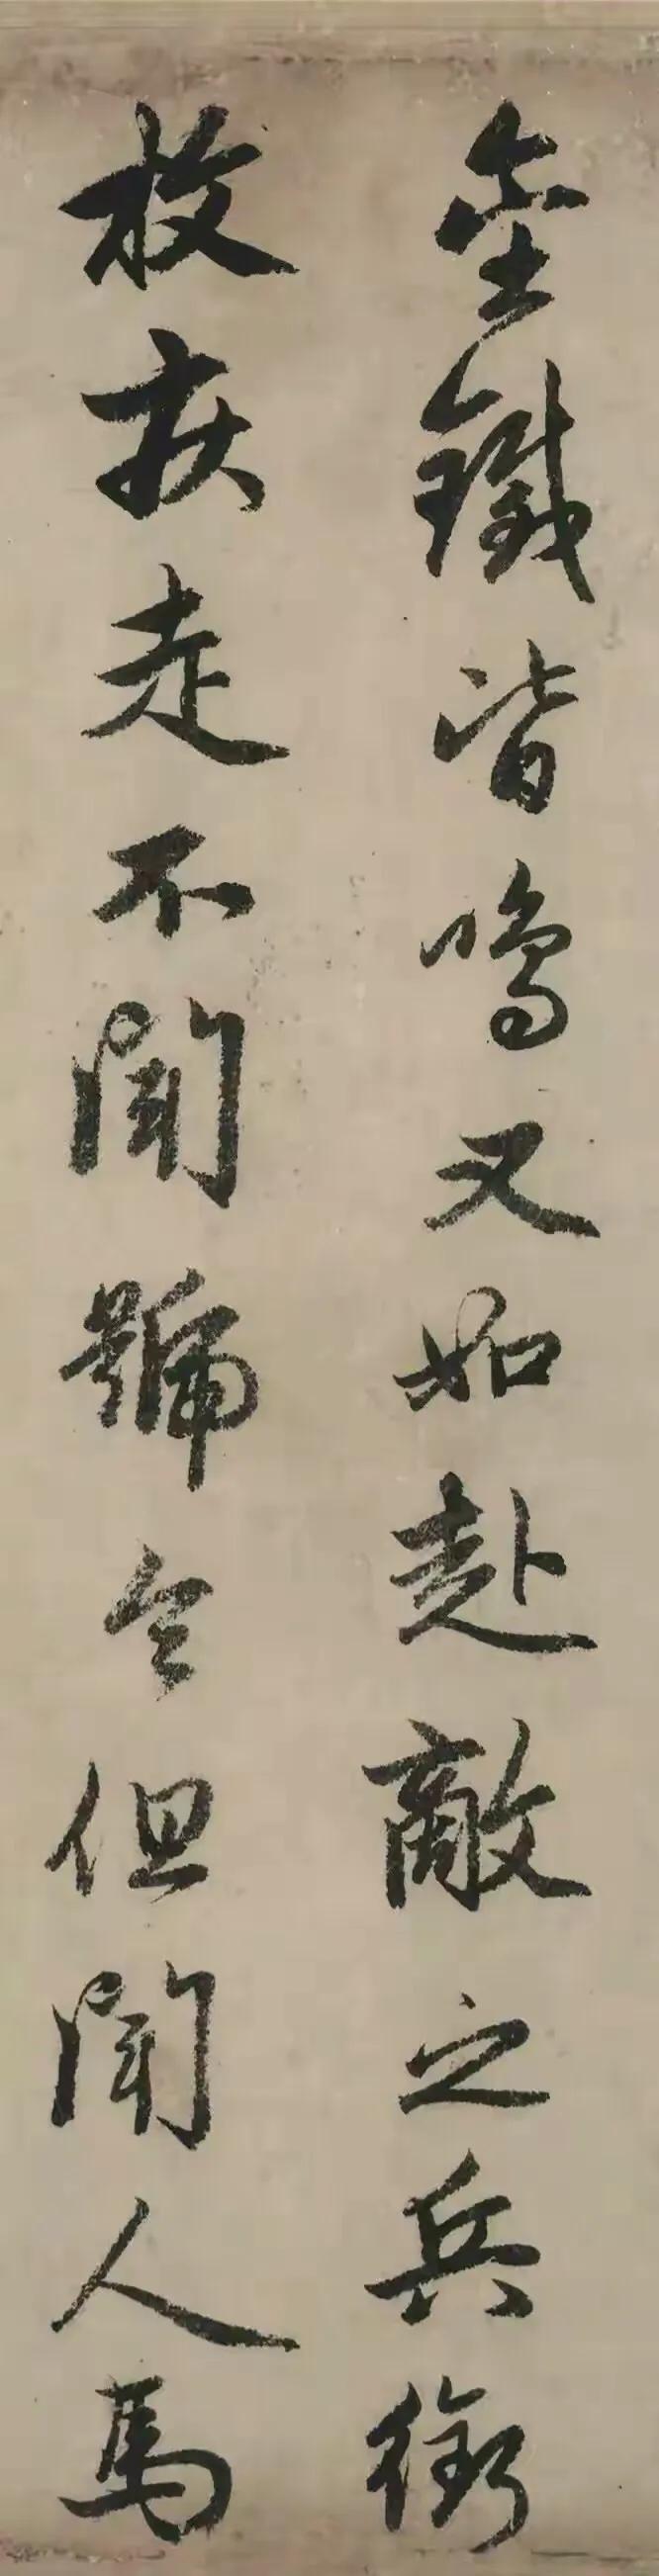 金鐵皆鳴又如赴敵之兵銜
枚疾走不聞號令但聞人馬